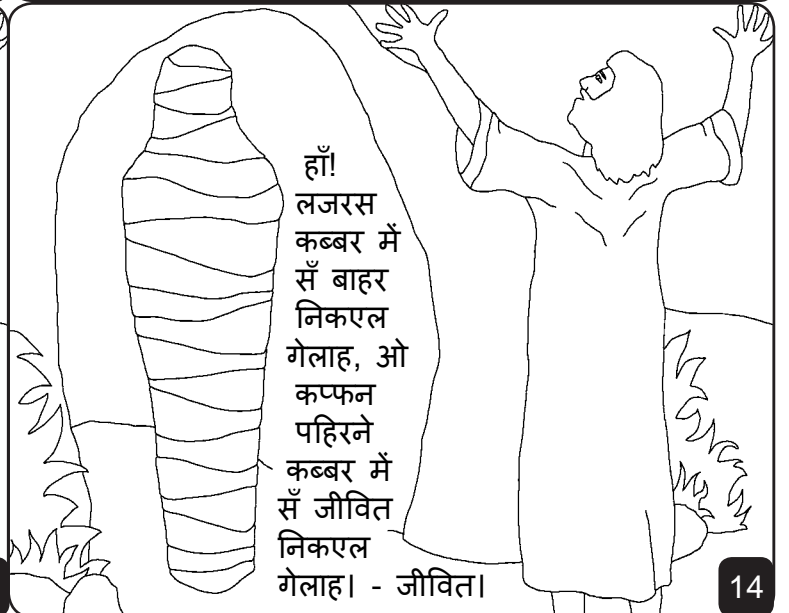 हाँ!
लजरस
कब्बर में
सँ बाहर
निकएल
गेलाह, ओ
कप्फन
पहिरने
कब्बर में
सँ जीवित
निकएल
गेलाह। - जीवित।
14